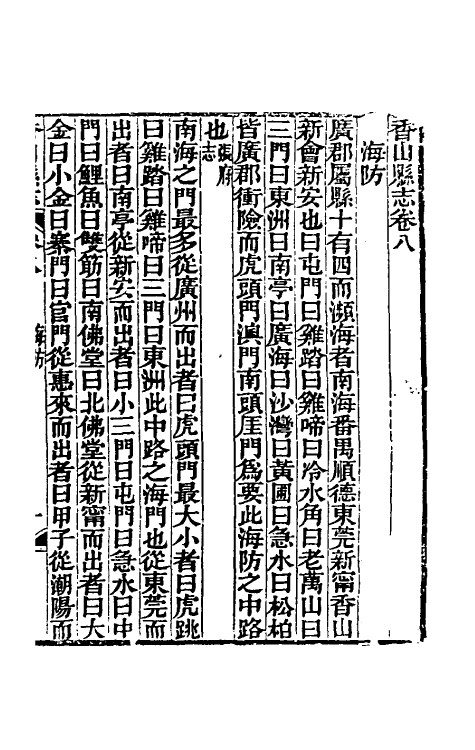 香山縣志卷八
海防
廣郡屬縣十有四而瀕海者南海番禺順德東莞新甯香山
新會新安也曰屯門曰雞踏曰雞啼曰冷水角曰老萬山曰
三門曰東洲曰南亭曰廣海曰沙灣曰黃圃曰急水曰松柏
皆廣郡衝險而虎頭門澳門南頭厓門爲要此海防之中路
也張府志
南海之門最多從廣州而出者曰虎頭門最大小者曰虎跳
曰雞踏曰雞啼曰三門曰東洲此中路之海門也從東莞而
出者曰南亭從新安而出者曰小三門曰屯門曰急水曰中
門曰鯉魚曰雙筋曰南佛堂曰北佛堂從新甯而出者曰大
金曰小金曰寨門曰官門從惠來而出者曰甲子從潮陽而
海防 一